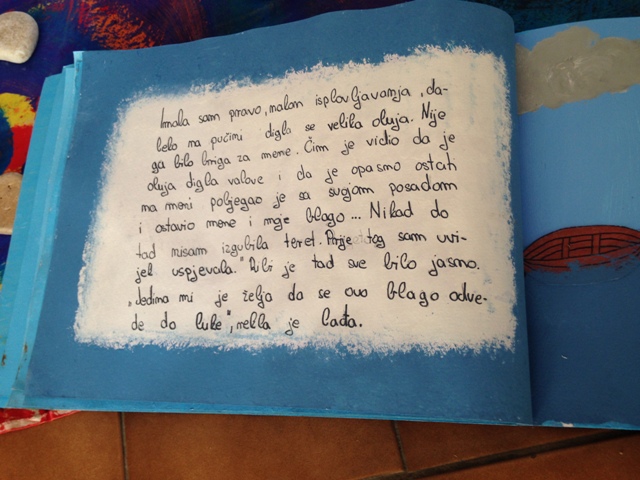 Imala sam pravo, nakon isplovljavanja, da-
leko na pučini digla se velika oluja. Nije
ga bilo briga za mene. Čim je vidio da je
oluja digla valove i da je opasno ostati
na meni pobjegao je sa svojom posadom
i ostavio mene i moje blago... Nikad do
tad nisam izgubila teret. Prije tog sam uvi-
jek uspjevala." Ribi je tad sve bilo jasno.
„Jedina mi je želja da se ovo blago odve-
de do luke", rekla je lađa.